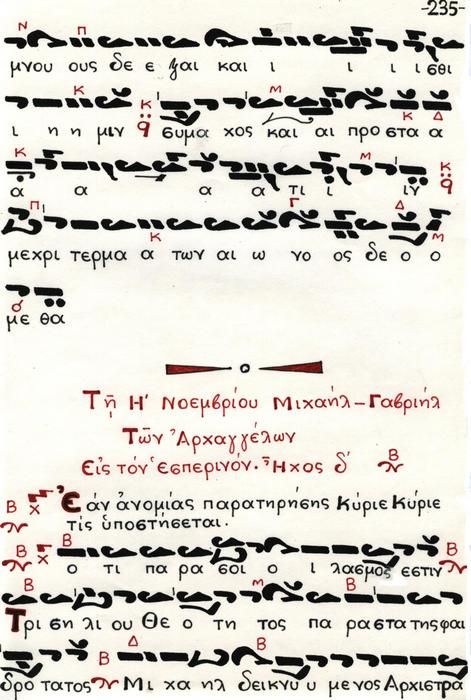 -235-
μνου ους δε ε ξαι και ι ι ι ισθι
ι η η μιν συμμα χος και αι προ στα α
α α α α τι ι ιν
μεχρι τερμα α των αι ω νο ος δε ο ο
με θα
Τῇ Η' Νοεμβρίου Μιχαήλ-Γαβριήλ
Τῶν Ἀρχαγγέλων
Εἰς τόν Ἑσπερινόν. Ἦχος δ'
Ἐάν ἀνομίας παρατηρήσης Κύριε Κύριε
τίς ὑποστήσεται.
ο τι πα ρα σοι ο ι λασμος εστιν
Τρι ση λι ου Θε ο τη τος πα ρα στα της φαι
δρο τατος Μι χα ηλ δεικνυ υ μενος Αρχιστρα